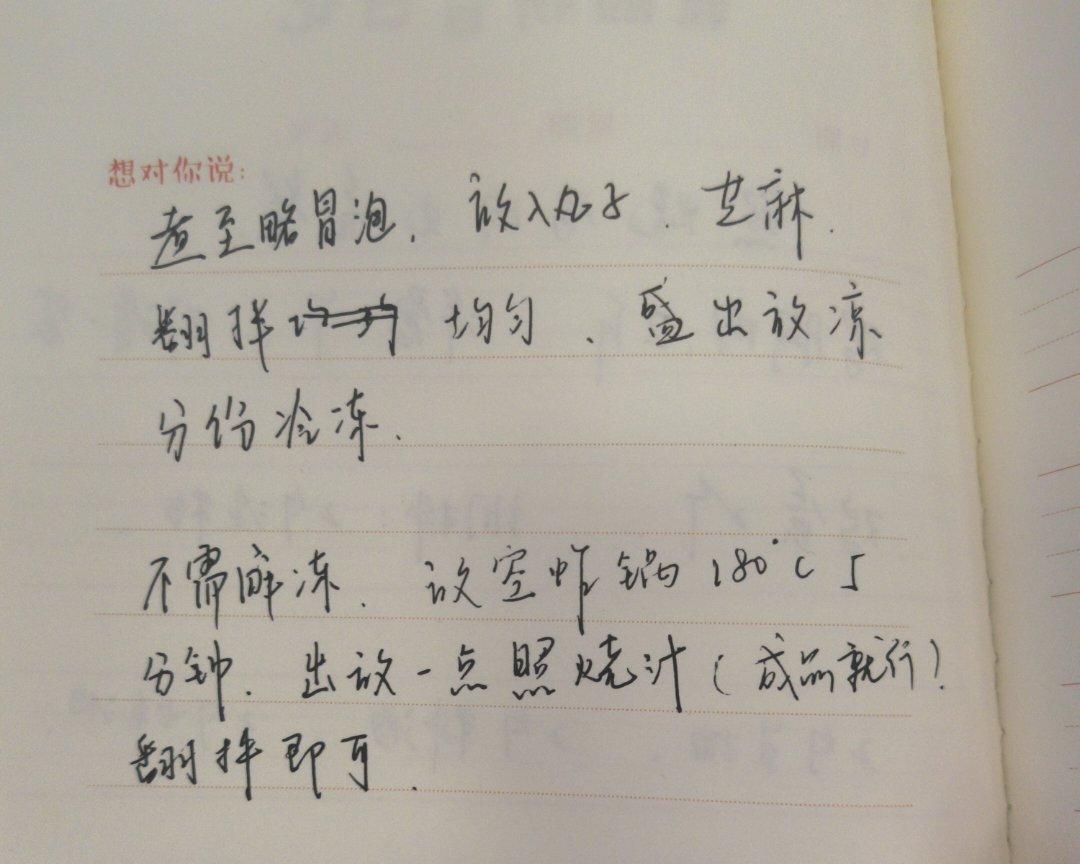 想对你说:
煮至略冒泡，放入丸子、芝麻.
翻拌均匀、盛出放凉
分份冷冻.
不需解冻. 放空炸锅180°C 5
分钟. 出放一点照烧汁(成品就行)
翻拌即可.